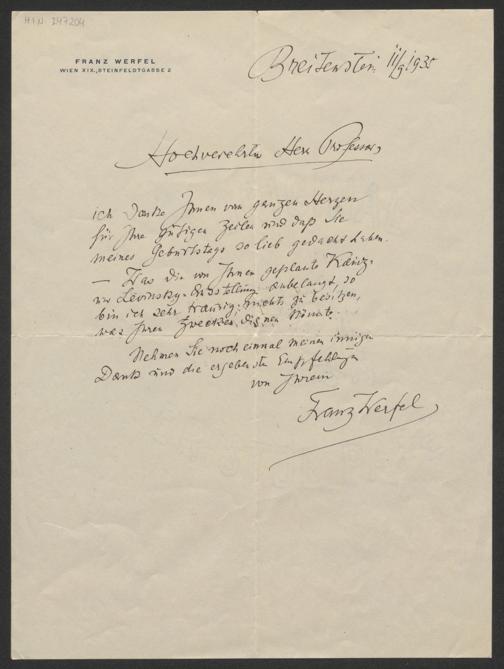 HIN 247204
FRANZ WERFEL
WIEN XIX., STEINFELDGASSE 2
Breitenstein 11/9 1930
Hochverehrter Herr Professor,
ich danke Ihnen von ganzem Herzen
für Ihre gütigen Zeilen und daß Sie
meines Geburtstags so lieb gedacht haben.
— Was die von Ihnen geplante Kainz-
Lewinsky-Ausstellung anbelangt, so
bin ich sehr traurig, nichts zu besitzen,
was Ihren Zwecken dienen könnte.
Nehmen Sie noch einmal meinen innigen
Dank und die ergebensten Empfehlungen
von Ihrem
Franz Werfel